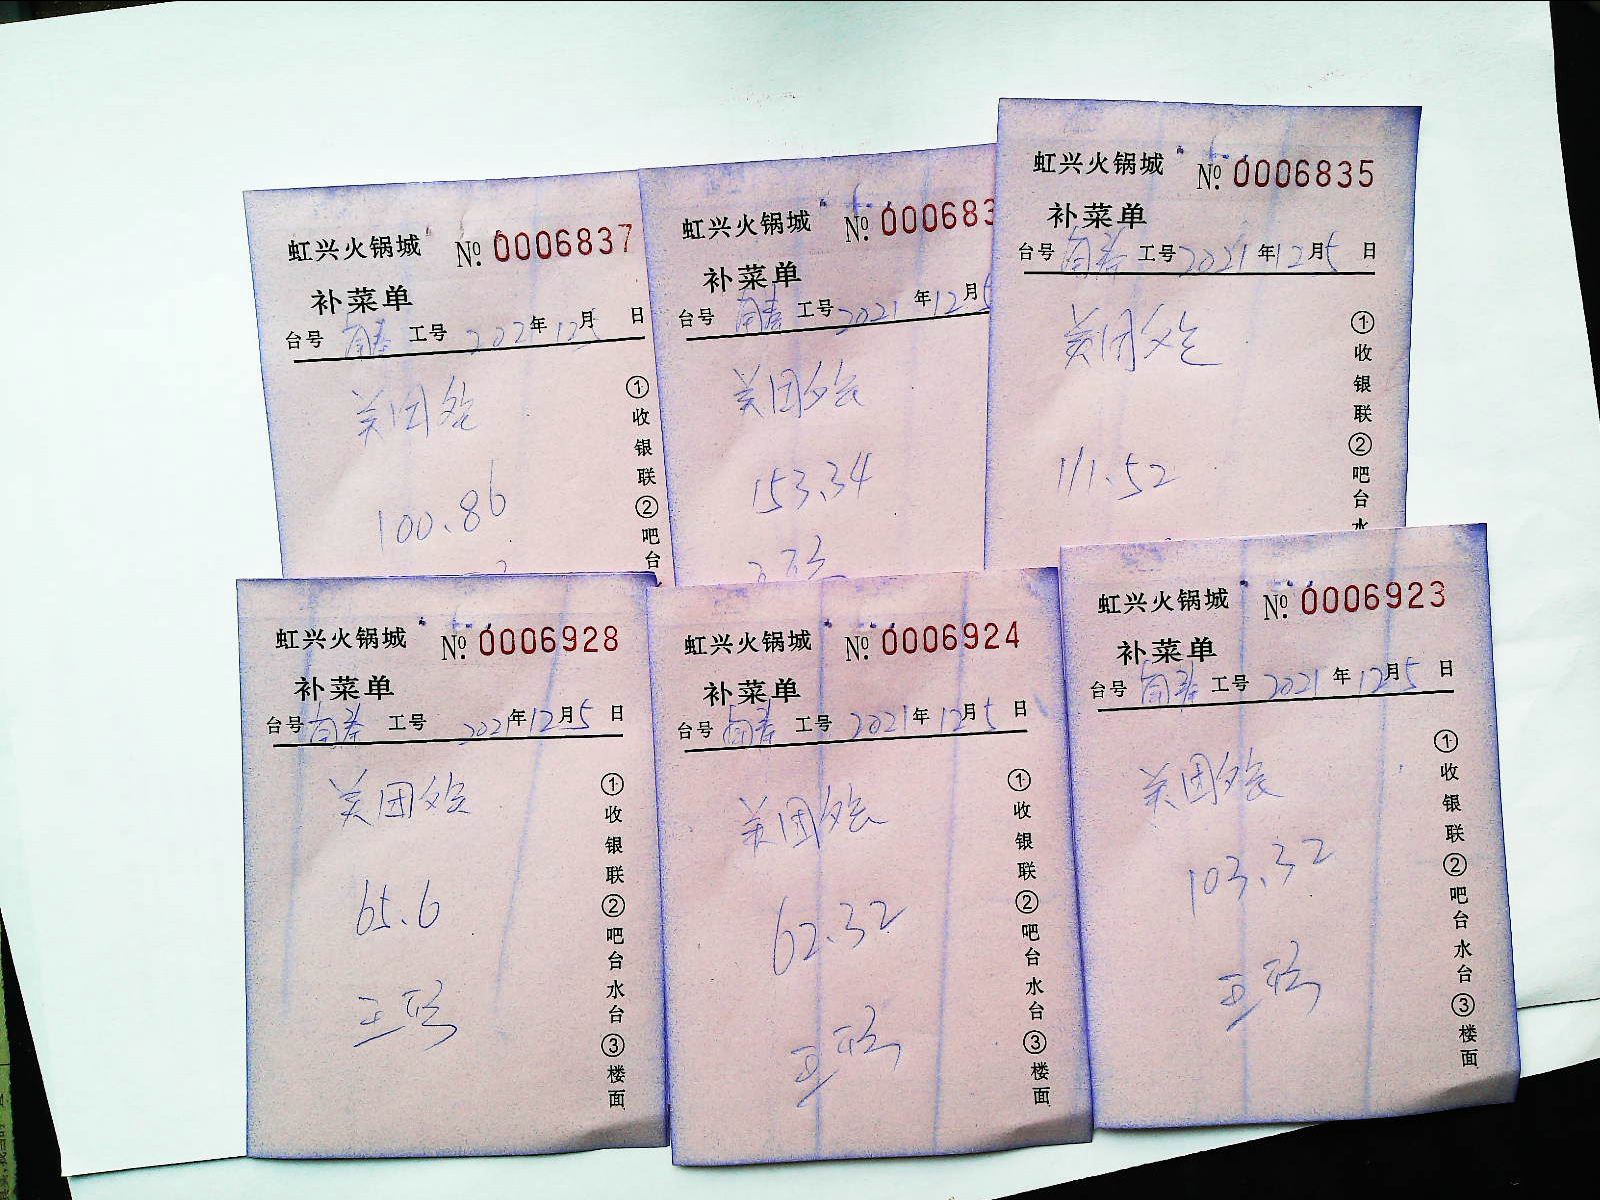 虹兴火锅城 № 0006837
补菜单
台号 南春 工号 2021年12月5日
美团外卖
100.86
①收银联②吧台
虹兴火锅城 № 000683
补菜单
台号 南春 工号 2021年12月5
美团外卖
153.34
虹兴火锅城 № 0006835
补菜单
台号 南春 工号 2021年12月5日
美团外卖
111.52
①收银联②吧台水
虹兴火锅城 № 0006928
补菜单
台号 南春 工号 2021年12月5日
美团外卖
65.6
①收银联②吧台水台③楼面
虹兴火锅城 № 0006924
补菜单
台号 南春 工号 2021年12月5日
美团外卖
62.32
①收银联②吧台水台③楼面
虹兴火锅城 № 0006923
补菜单
台号 南春 工号 2021年12月5日
美团外卖
103.32
①收银联②吧台水台③楼面